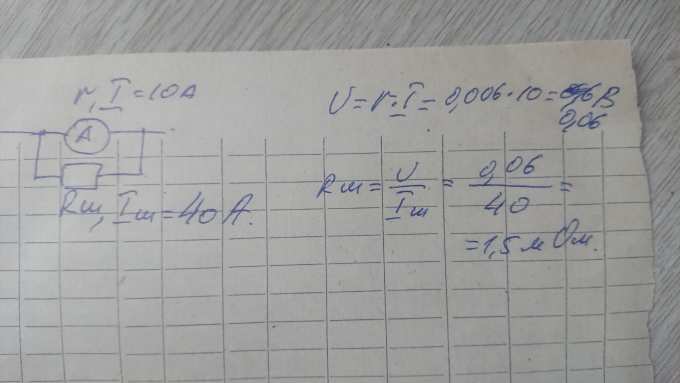 r, I = 10А
А
Rш, Iш = 40 А.
U = r·I = 0,006·10 = 0,6 В
0,06
Rш = U/Iш = 0,06/40 =
= 1,5 м Ом.